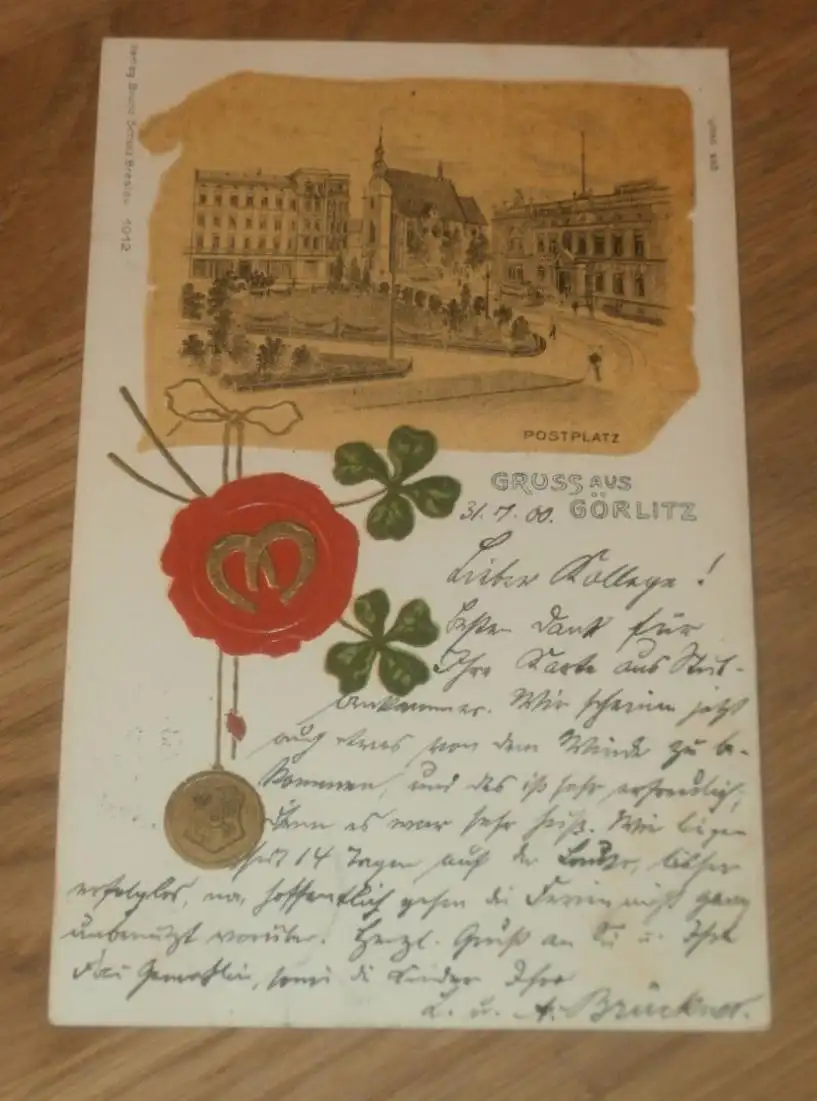 Verlag Bruno Scholz, Breslau 1012
POSTPLATZ
GRUSS AUS
GÖRLITZ
31.7.00.
Lieber Kollege!
Besten Dank für
Ihre Karte aus Stub-
benkammer. Wir scheinen jetzt
auch etwas von dem Winde zu be-
kommen, und das ist sehr erfreulich,
denn es war sehr heiß. Wir liegen
seit 14 Tagen auf der bisher
erfolglos, na, hoffentlich gehen die Ferien nicht ganz
unbenutzt vorüber. Herzl. Gruß an Sie u. Ihre
Frau Gemahlin, sowie die Kinder Ihre
L. u. A. Brückner.